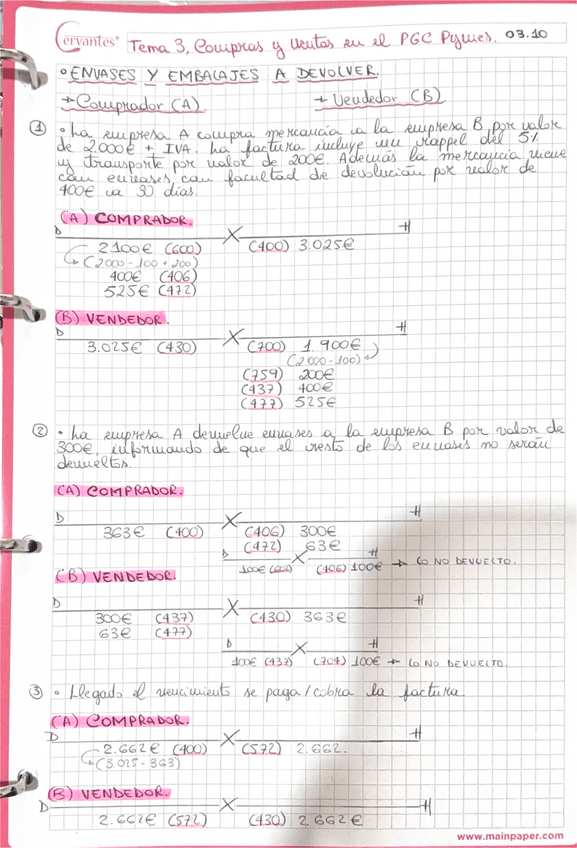 Cervantes® Tema 3, Compras y ventas en el PGC Pymes. 03.10
• ENVASES Y EMBALAJES A DEVOLVER.
→ Comprador (A) → Vendedor (B)
① • La empresa A compra mercancía a la empresa B por valor
de 2.000€ + IVA. La factura incluye un rappel del 5%
y transporte por valor de 200€. Además la mercancía viene
con envases con facultad de devolución por valor de
400€ a 30 días.
(A) COMPRADOR.
D X H
2.100€ (600) (400) 3.025€
(2.000-100+200)
400€ (406)
525€ (472)
(B) VENDEDOR.
D X H
3.025€ (430) (700) 1.900€
(2.000-100)
(759) 200€
(437) 400€
(477) 525€
② • La empresa A devuelve envases a la empresa B por valor de
300€, informando de que el resto de los envases no serán
devueltos.
(A) COMPRADOR.
D X H
363€ (400) (406) 300€
(472) 63€
D X H
100€ (602) (406) 100€ → LO NO DEVUELTO.
(B) VENDEDOR.
D X H
300€ (437) (430) 363€
63€ (477)
D X H
100€ (437) (704) 100€ → LO NO DEVUELTO.
③ • Llegado el vencimiento se paga/cobra la factura.
(A) COMPRADOR.
D X H
2.662€ (400) (572) 2.662.
(3.025-363)
(B) VENDEDOR.
D X H
2.662€ (572) (430) 2.662€
www.mainpaper.com